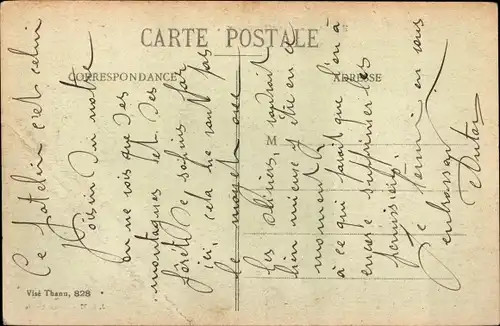 CARTE POSTALE
CORRESPONDANCE
ADRESSE
M
Ce patelin c'est celui
voisin du notre
on ne vois que des
montagnes et des
forêts de sapins
ici, cela ne vaut pas
le moyen
Les obusiers, voudrait
bien mieux y être en ce
moment
à ce qui parait que l'on a
encore supprimer les
permissions.
Je termine en vous
embrassant
Visé Thann, 828